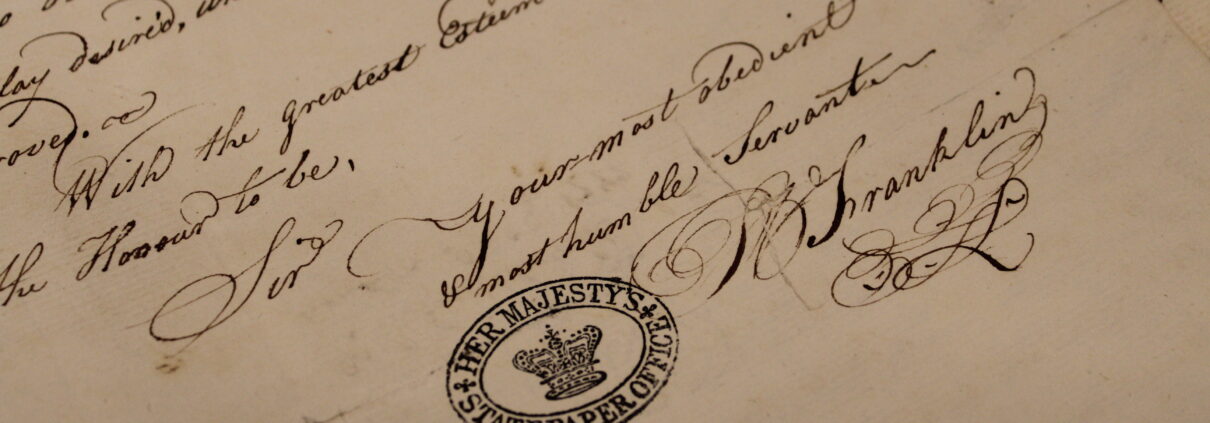 lay desired,
With the greatest Esteem
the Honour to be,
Sir
Your most obedient
& most humble Servant
B Franklin
HER MAJESTY'S STATE PAPER OFFICE